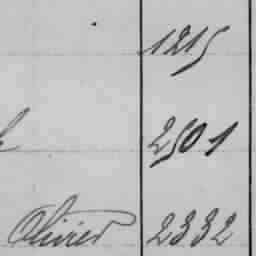 1215
2501
Olivier 2332